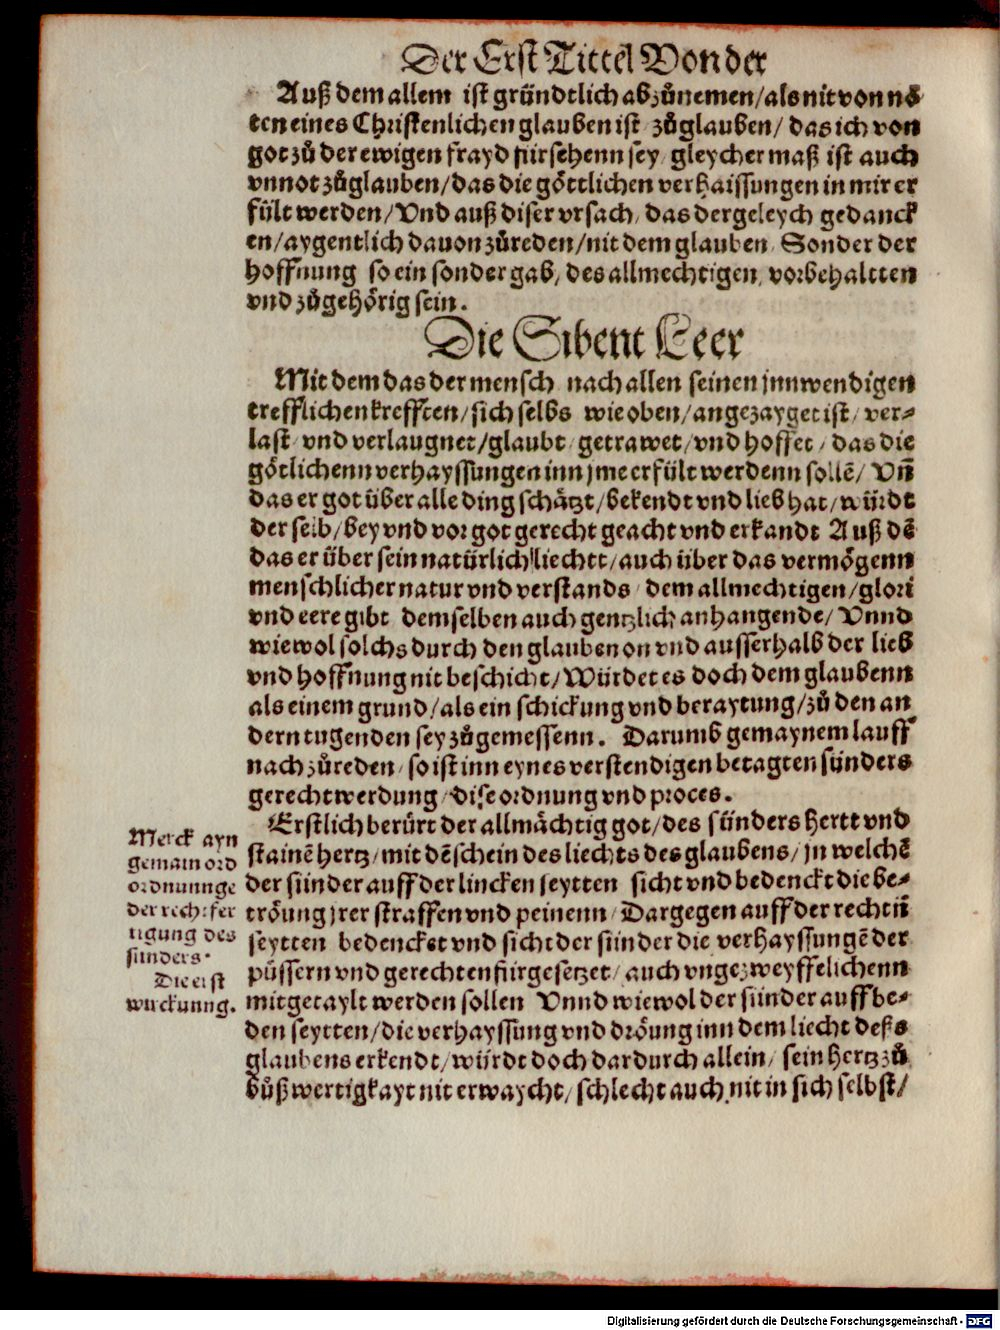 Der Erst Tittel Von der
Auß dem allem ist gründtlich abzůnemen/als nit von nö
ten eines Christenlichen glauben ist zůglauben/ das ich von
got zů der ewigen frayd fürsehenn sey gleycher maß ist auch
vnnot zůglauben/das die göttlichen verhaissungen in mir er
fült werden/Vnd auß diser vrsach, das dergeleych gedanck
en/aygentlich dauon zůreden/nit dem glauben, Sonder der
hoffnung so ein sonder gab, des allmechtigen, vorbehaltten
vnd zůgehörig sein.
Die Sibent Leer
Mit dem das der mensch nach allen seinen jnnwendigen
trefflichen krefften/sich selbs wie oben/angezayget ist, ver⸗
last vnd verlaugnet/glaubt getrawet, vnd hoffet, das die
götlichenn verhayssungen inn jme erfült werdenn sollē/ Vn̄
das er got über alle ding schätzt/bekendt vnd lieb hat/würdt
der selb/bey vnd vor got gerecht geacht vnd erkandt Auß dē
das er über sein natürlich liechtt/auch über das vermögenn
menschlicher natur vnd verstands, dem allmechtigen/glori
vnd eere gibt demselben auch gentzlich anhangende/ Vnnd
wiewol solchs durch den glauben on vnd ausserhalb der lieb
vnd hoffnung nit beschicht/Würdet es doch dem glaubenn
als einem grund/als ein schickung vnd beraytung/zů den an
dern tugenden sey zůgemessenn. Darumb gemaynem lauff
nach zůreden, so ist inn eynes verstendigen betagten sünders
gerechtwerdung, dise ordnung vnd proces.
Erstlich berürt der allmächtig got/des sünders hertt vnd
stainē hertz/mit dē schein des liechts des glaubens/ jn welchē
der sünder auff der lincken seytten sicht vnd bedenckt die be⸗
tröung jrer straffen vnd peinenn, Dargegen auff der rechtn̄
seytten bedencket vnd sicht der sünder die verhayssungē der
püssern vnd gerechten fürgesetzet, auch vngezweyffelichenn
mitgetaylt werden sollen Vnnd wiewol der sünder auff be⸗
den seytten/die verhayssung vnd dröung inn dem liecht deß
glaubens erkendt/würdt doch dardurch allein, sein hertz zů
bůßwertigkayt nit erwaycht/schlecht auch nit in sich selbst/
Merck ayn
gemain ord
ordnunnge
der rechtfer
tigung des
sünders.
Die erst
wuckunng.
Digitalisierung gefördert durch die Deutsche Forschungsgemeinschaft - DFG